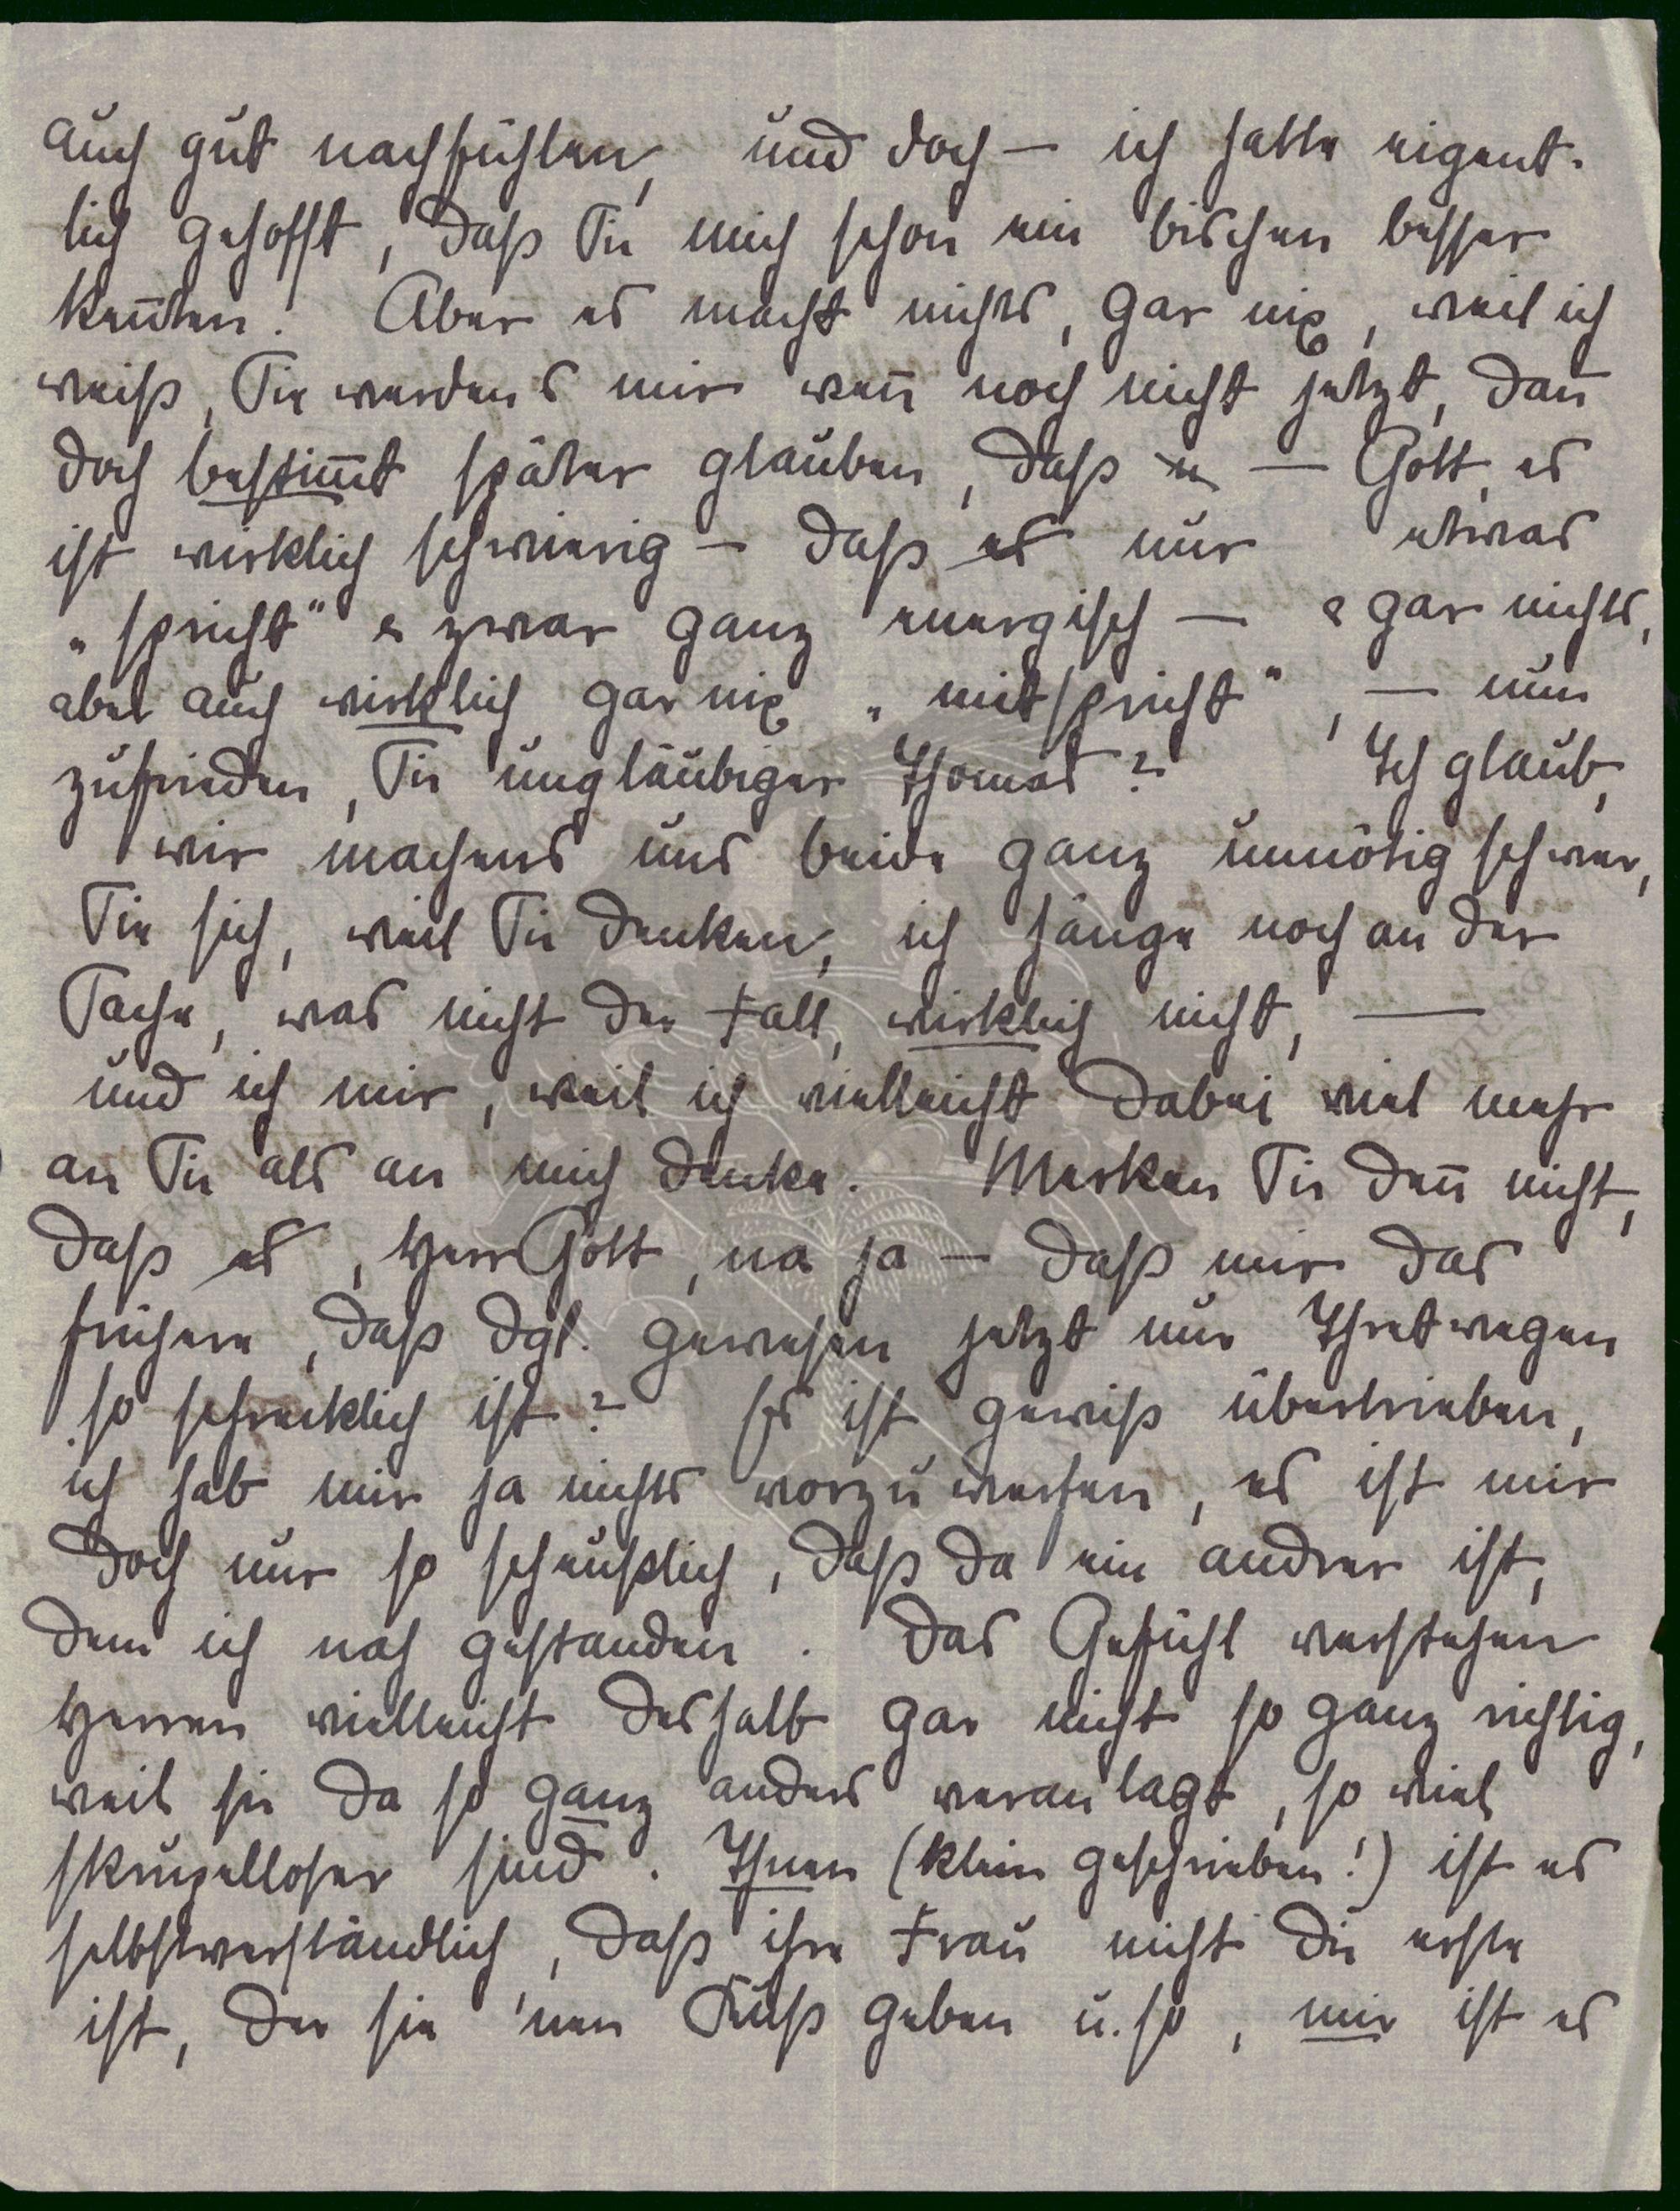 auch gut nachfühlen, und doch – ich hatte eigent-
lich gehofft, daß Sie mich schon ein bischen besser
kennten! Aber es macht nichts, gar nix, weil ich
weiß, Sie werdens mir wenn noch nicht jetzt, dann
doch bestimmt später glauben, daß – Gott, es
ist wirklich schwierig – daß es nur etwas
„spricht" & zwar ganz energisch – & gar nichts,
aber auch wirklich gar nix „mitspricht", – nun
zufrieden, Sie ungläubiger Thomas? Ich glaub,
wir machens uns beide ganz unnötig schwer,
Sie sich, weil Sie denken, ich hänge noch an der
Sache, was nicht der Fall, wirklich nicht, –
und ich mir, weil ich vielleicht dabei viel mehr
an Sie als an mich denke. Merken Sie denn nicht,
daß es, Herr Gott, na ja – daß mir das
frühere, daß dgl. gewesen jetzt nur Ihretwegen
so schrecklich ist? Es ist gewiß übertrieben,
ich hab mir ja nichts vorzuwerfen, es ist mir
doch nur so scheußlich, daß da ein andrer ist,
dem ich nah gestanden. Das Gefühl verstehen
Herren vielleicht deshalb gar nicht so ganz richtig,
weil sie da so ganz anders veranlagt, so viel
skrupelloser sind. Ihnen (klein geschrieben!) ist es
selbstverständlich, daß ihre Frau nicht die erste
ist, der sie 'nen Kuß geben u. so, mir ist es